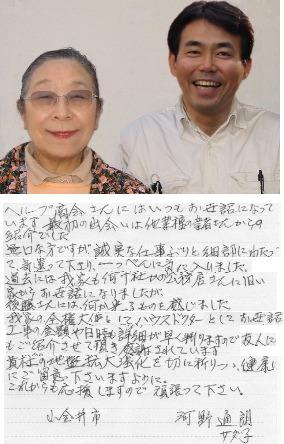 ヘルプ商会さんにはいつもお世話になって
います 最初の出会いは他業種の業者さんからの
紹介でした
無口な方ですが誠実な仕事ぶりと細部にわたっ
て 下さり、一っぺんに気に入りました。
過去には我家も何十社かの工務店さんに旧い
家からお世話になりましたが
後藤さんには、何か光るものを感じました
我家の全権大使としてハウスドクターとしてお世話
工事の金額や日時も詳細が早く判りますで友人に
もご紹介させて頂き感謝されています
貴社の地盤 強化を切に祈りつつ、健康
にご留意下さいますように。
これからも応援しますので頑張って下さい。
小金井市 河野通朗
サダ子